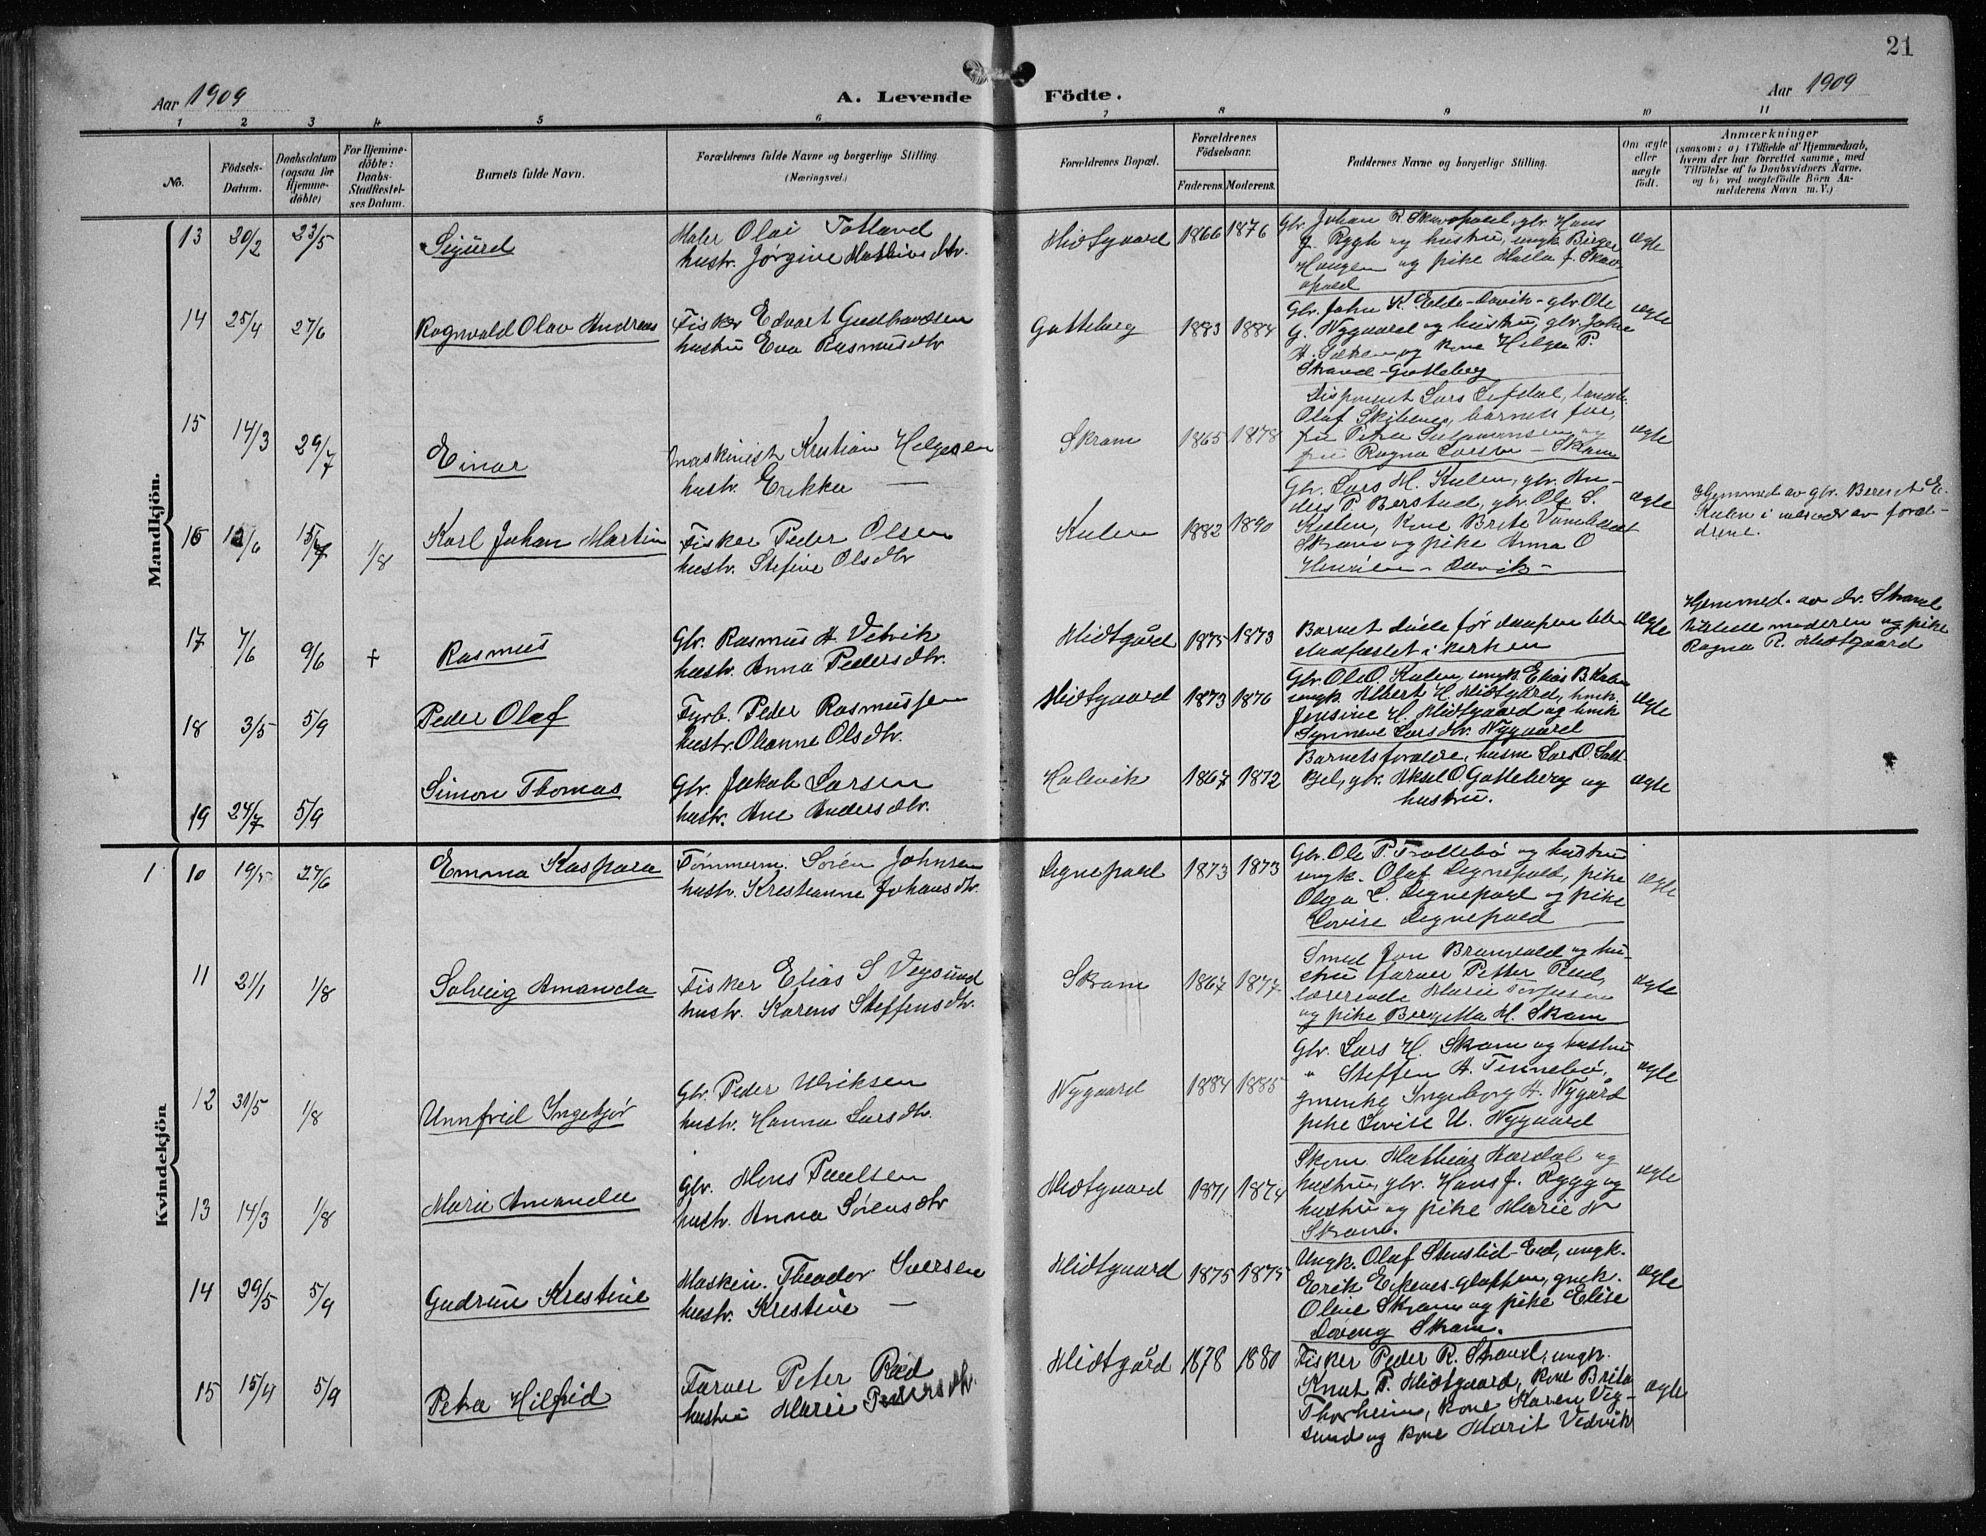 21
Aar 1909
A. Levende Födte.
Aar 1909
1 2 3 4 5 6 7 8 9 10 11
No.
Födsels-Datum.
Daabsdatum (ogsaa for Hjemmedöbte)
For Hjemmedöbte: Daabs-Stadfæstelses Datum.
Barnets fulde Navn.
Forældrenes fulde Navne og borgerlige Stilling. (Næringsvei.)
Forældrenes Bopæl.
Forældrenes Födselsaar.
Faderens. Moderens.
Faddernes Navne og borgerlige Stilling.
Om ægte eller uægte födt.
Anmærkninger
(saasom: a) i Tilfælde af Hjemmedaab, hvem der har forrettet samme, med Tilföielse af to Daabsvidners Navne, og b) ved uægtefödte Börn Anmelderens Navn m. V.)
Mandkjön.
13 20/2 23/5 Sigurd
Maler Olai Totland
hustr. Jørgine Mathiasdtr.
Midtgaard 1866 1876
Gbr. Johan R. Skavøpold, gbr. Hans
J. Rygh og hustru, ungk. Birger
Haugen og pike
ægte
14 25/4 27/6 Ragnvald Olav Andreas
Fisker Edvart Gudbrandsen
hustru Eva Rasmusdtr
Gotteberg 1883 1884
Gbr. John K. Eide-Davik - gbr. Ole
G. Nygaard og hustru, gbr. Johan
A. og kone Helga P.
Strand-Gotteberg
ægte
15 14/3 29/7 Einar
Maskinist Kristian Helgesen
hustr. Erikka —
Skram 1865 1878
Disponent Lars Lefdal, landh.
Olaf Skibenes, barnets far,
fru Petra Salamonsen og
fru Ragna Larsen - Skram
ægte
16 /6 15/7 1/8 Karl Johan Martin
Fisker Peder Olsen
hustr. Stefine Olsdtr
Kulen 1882 1890
Gbr. Lars M. Kulen, gbr. An-
ders P. Berstad, gbr. Ole S.
Kulen, kone Brite
Skram og pike Anna O
- Davik -
ægte
Hjemmed av gbr. Berent E.
Kulen i nærvær av foræl-
drene.
17 7/6 9/6 + Rasmus
Gbr. Rasmus A. Vetvik
hustr. Anna Pedersdtr.
Midtgård 1875 1873
Barnet døde før daapen blev
stadfæstet i kirken
ægte
Hjemmed. av dr. Strand
tilstede moderen og pike
Ragna R. Midtgaard
18 3/5 5/9 Peder Olaf
Fyrb. Peder Rasmussen
hustr. Olianne Olsdtr.
Midtgaard 1873 1876
Gbr. Ole O. Kulen, ungk. Elias B. Kulen
ungk. Albert H. Midtgård, hmk.
Jensine H. Midtgaard og hmk
Synneve Larsdtr. Nygaard
ægte
19 24/7 5/9 Simon Thomas
Gbr. Jakob Larsen
hustr. Ane Andersdtr.
Holevik 1867 1872
Barnets forældre, husm Lars O. Salt-
kjel, gbr. Aksel O. Gotteberg og
hustru.
ægte
Kvindekjön
1 10 19/5 27/6 Emma Kaspara
Tømmerm. Søren Johnsen
hustr. Kristianne Johansdtr.
Degnepold 1873 1873
Gbr. Ole P. Trollebø og hustru
ungk. Olaf Degnepold, pike
Olga L. Degnepold og pike
Lovise Degnepold
ægte
11 21/1 1/8 Solveig Amanda
Fisker Elias S Vegsund
hustr. Karens Steffensdtr.
Skram 1867 1877
Smed Jon Brunvold og hu-
stru farver Petter Reed,
lærerinde Marie
og pike Bergitta M. Skram
ægte
12 31/5 1/8 Unnfrid Ingebjør
Gbr. Peder Ulriksen
hustr. Hanna Larsdtr.
Nygaard 1884 1885
Gbr. Lars H. Skram og hustru
" Steffen A. Tennebø,
gmenke Ingeborg A. Nygård
pike Lovise U. Nygaard
ægte
13 14/3 1/8 Marie Amanda
Gbr. Mons Paulsen
hustr. Anna Sørensdtr
Midtgaard 1871 1874
Skom. Mathias Aardal og
hustru, gbr. Hans J. Rygg og
hustru og pike Marie
Skram.
ægte
14 29/5 5/9 Gudrun Kristine
Maskin. Theodor Iversen
hustr. Kristine —
Midtgaard 1875 1875
Ungk. Olaf Stenslid-Eid, ungk.
Erik Eikenes-Gloppen, gmk.
Oline Skram og pike Elise
Skram.
ægte
15 15/4 5/9 Petra Hilfrid
Farver Peter Reed
hustru Marie Pedersdtr.
Midtgård 1878 1880
Fisker Peder R. Strand, ungk.
Knut P. Midtgaard, kone Brita
Thorheim, kone Karen Veg-
sund og kone Marit Vedvik
ægte